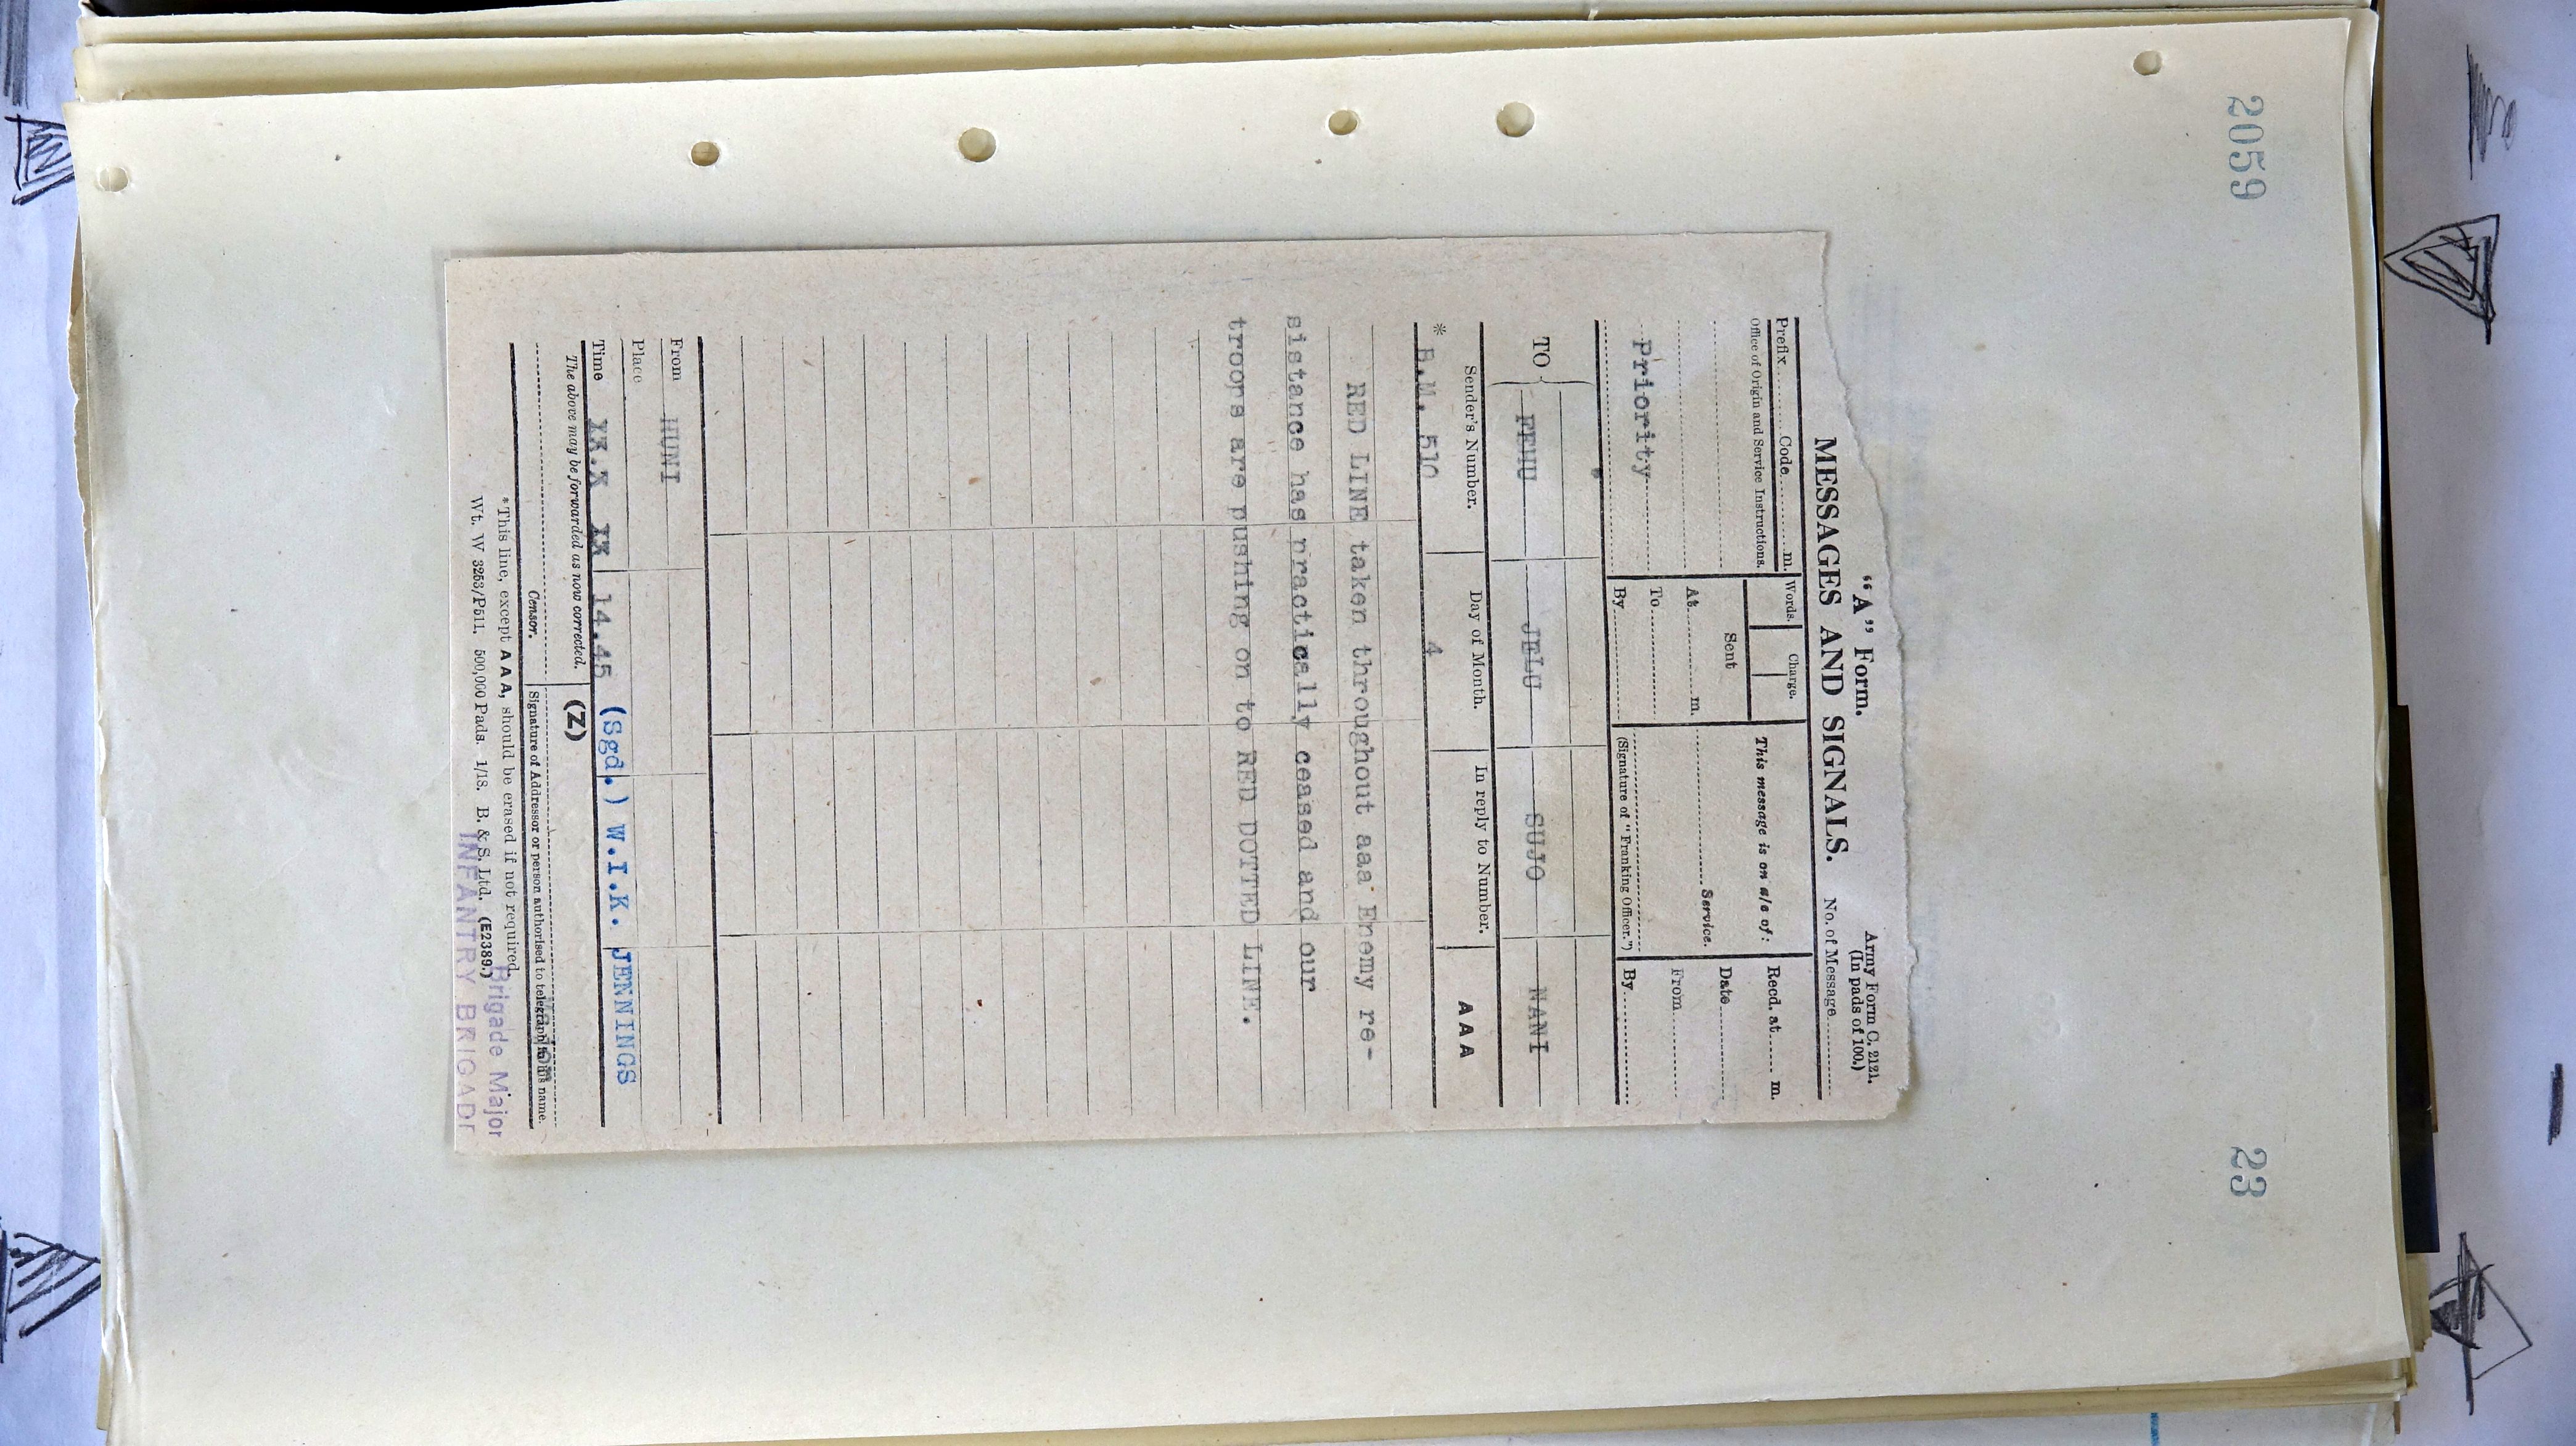 2059
23
"A" Form.
Army Form C. 2121.
(In pads of 100.)
MESSAGES AND SIGNALS.
No. of Message
Prefix Code m.
Words. Charge.
This message is on a/c of:
Recd. at m.
Office of Origin and Service Instructions.
Sent
Date
At m.
Service.
From
Priority
To
By
(Signature of "Franking Officer.")
By
TO
FEHU JELU SUJO NANI
Sender's Number. Day of Month. In reply to Number. A A A
* B.M. 510 4
RED LINE taken throughout aaa Enemy re-
sistance has practically ceased and our
troops are pushing on to RED DOTTED LINE.
From HUNI
Place
Time 14.45 (Sgd.) W.I.K. JENNINGS
The above may be forwarded as now corrected. (Z)
Censor. Signature of Addressor or person authorised to telegraph in his name.
*This line, except A A A, should be erased if not required.
Brigade Major
Wt. W 3253/P511. 500,000 Pads. 1/18. B. & S. Ltd. (E2389.)
INFANTRY BRIGADE